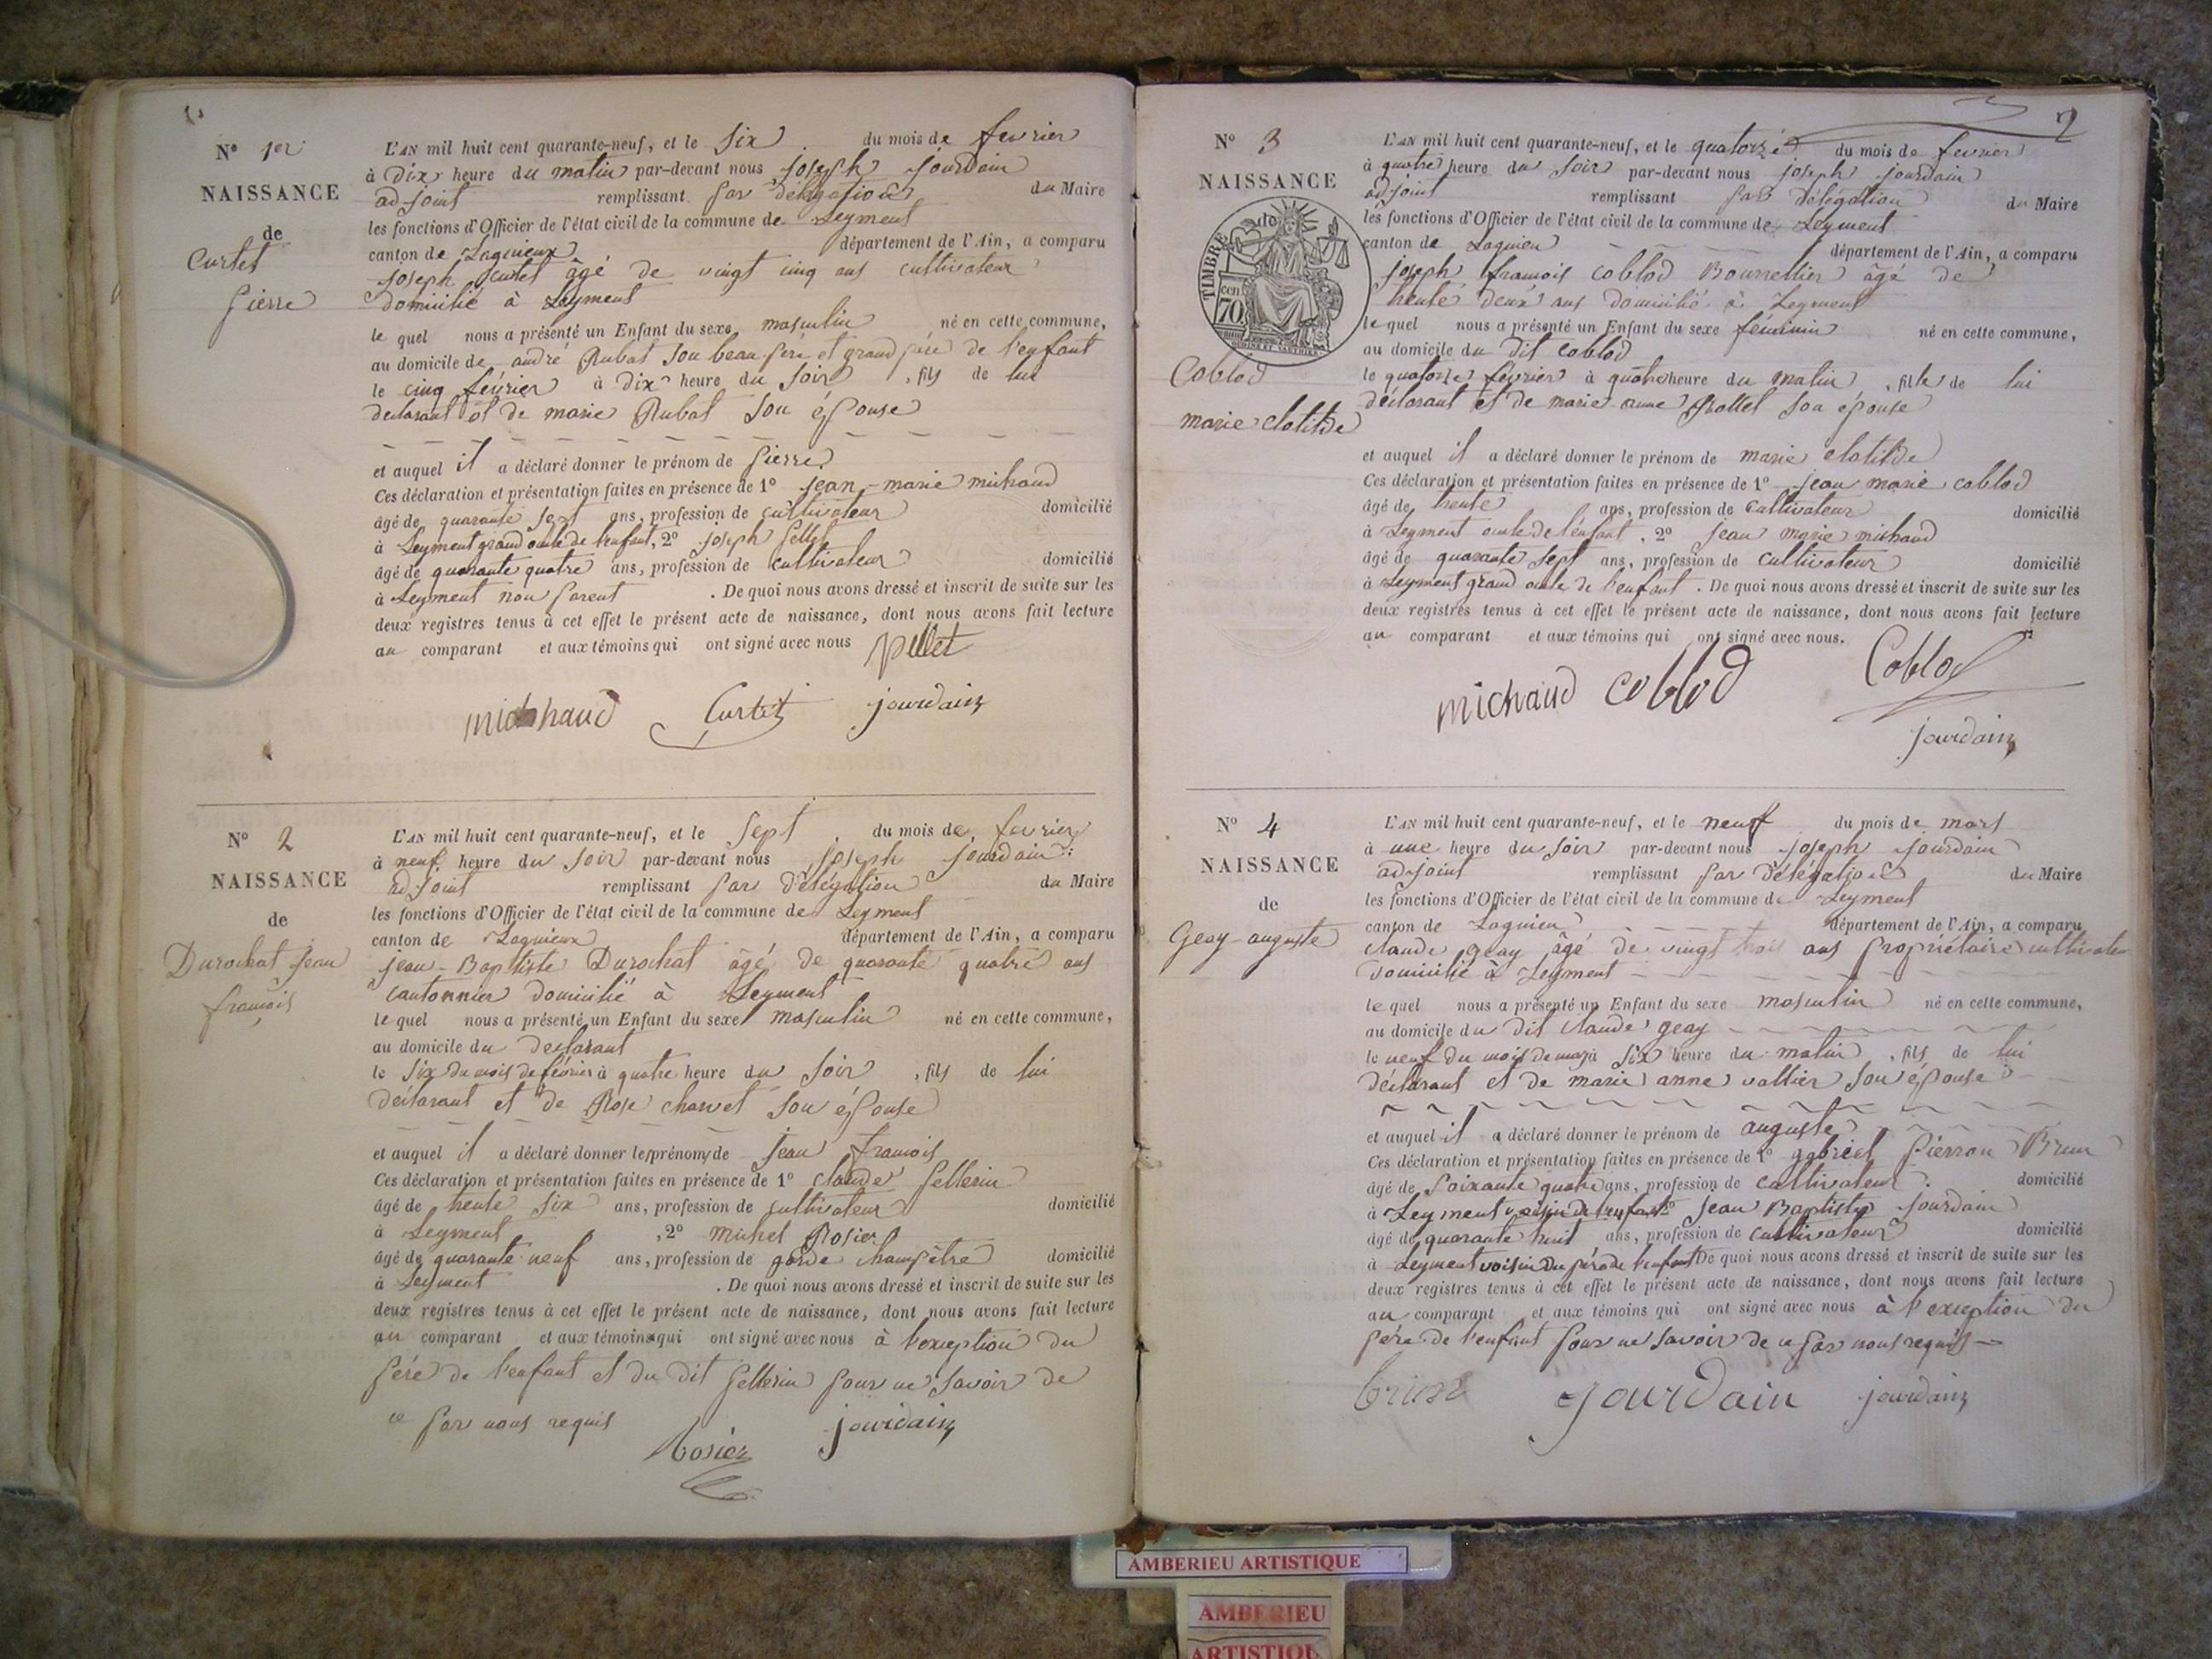 N° 1er
NAISSANCE
de
Curtet
Pierre
L'AN mil huit cent quarante-neuf, et le six du mois de fevrier
à dix heure du matin par-devant nous joseph jourdain
adjoint remplissant par délégation du Maire
les fonctions d'Officier de l'état civil de la commune de Leyment
canton de Lagnieux département de l'Ain, a comparu
joseph Curtet âgé de vingt cinq ans cultivateur
domicilié à Leyment
le quel nous a présenté un Enfant du sexe masculin né en cette commune,
au domicile de andré Rubat son beau père et grand père de l'enfant
le cinq février à dix heure du soir, fils de lui
declarant et de marie Rubat son épouse
et auquel il a déclaré donner le prénom de pierre
Ces déclaration et présentation faites en présence de 1° jean-marie michaud
âgé de quarante sept ans, profession de cultivateur domicilié
à Leyment grand oncle de l'enfant, 2° joseph pellet
âgé de quarante quatre ans, profession de cultivateur domicilié
à Leyment non parent. De quoi nous avons dressé et inscrit de suite sur les
deux registres tenus à cet effet le présent acte de naissance, dont nous avons fait lecture
au comparant et aux témoins qui ont signé avec nous pellet
michaud Curtet jourdain
N° 2
NAISSANCE
de
Durochat jean
françois
L'AN mil huit cent quarante-neuf, et le sept du mois de fevrier
à neuf heure du soir par-devant nous joseph jourdain
adjoint remplissant par délégation du Maire
les fonctions d'Officier de l'état civil de la commune de Leyment
canton de Lagnieux département de l'Ain, a comparu
jean-Baptiste Durochat âgé de quarante quatre ans
cantonnier domicilié à Leyment
le quel nous a présenté un Enfant du sexe masculin né en cette commune,
au domicile du declarant
le six du mois de février à quatre heure du soir, fils de lui
déclarant et de Rose charvet son épouse
et auquel il a déclaré donner les prénoms de jean francois
Ces déclaration et présentation faites en présence de 1° claude pellerin
âgé de trente six ans, profession de cultivateur domicilié
à Leyment, 2° michel Rosier
âgé de quarante neuf ans, profession de garde champêtre domicilié
à Leyment. De quoi nous avons dressé et inscrit de suite sur les
deux registres tenus à cet effet le présent acte de naissance, dont nous avons fait lecture
au comparant et aux témoins qui ont signé avec nous à l'exception du
père de l'enfant et du dit pellerin pour ne savoir de
ce par nous requis
Rosier jourdain
2
N° 3
NAISSANCE
de
TIMBRE
cen
70
Coblod
marie clotilde
L'AN mil huit cent quarante-neuf, et le quatorze du mois de fevrier
à quatre heure du soir par-devant nous joseph jourdain
adjoint remplissant par délégation du Maire
les fonctions d'Officier de l'état civil de la commune de Leyment
canton de Lagnieu département de l'Ain, a comparu
joseph francois coblod Bourrellier âgé de
trente deux ans domicilié à Leyment
le quel nous a présenté un Enfant du sexe féminin né en cette commune,
au domicile du dit coblod
le quatorze fevrier à quatre heure du matin, fille de lui
déclarant et de marie anne son épouse
et auquel il a déclaré donner le prénom de marie clotilde
Ces déclaration et présentation faites en présence de 1° jean marie coblod
âgé de trente ans, profession de cultivateur domicilié
à Leyment oncle de l'enfant, 2° jean marie michaud
âgé de quarante sept ans, profession de cultivateur domicilié
à Leyment grand oncle de l'enfant. De quoi nous avons dressé et inscrit de suite sur les
deux registres tenus à cet effet le présent acte de naissance, dont nous avons fait lecture
au comparant et aux témoins qui ont signé avec nous.
michaud coblod Coblod
jourdain
N° 4
NAISSANCE
de
Geay auguste
L'AN mil huit cent quarante-neuf, et le neuf du mois de mars
à une heure du soir par-devant nous joseph jourdain
adjoint remplissant par délégation du Maire
les fonctions d'Officier de l'état civil de la commune de Leyment
canton de Lagnieu département de l'Ain, a comparu
claude geay âgé de vingt trois ans propriétaire cultivateur
domicilié à Leyment
le quel nous a présenté un Enfant du sexe masculin né en cette commune,
au domicile du dit claude geay
le neuf du mois de mars à six heure du matin, fils de lui
déclarant et de marie anne vallier son épouse
et auquel il a déclaré donner le prénom de auguste
Ces déclaration et présentation faites en présence de 1° gabriel pierron Brun
âgé de soixante quatre ans, profession de cultivateur domicilié
à Leyment voisin de l'enfant 2° jean Baptiste jourdain
âgé de quarante huit ans, profession de cultivateur domicilié
à Leyment voisin du père de l'enfant De quoi nous avons dressé et inscrit de suite sur les
deux registres tenus à cet effet le présent acte de naissance, dont nous avons fait lecture
au comparant et aux témoins qui ont signé avec nous à l'exception du
père de l'enfant pour ne savoir de ce par nous requis
jourdain jourdain
AMBERIEU ARTISTIQUE
AMBERIEU
ARTISTIQU